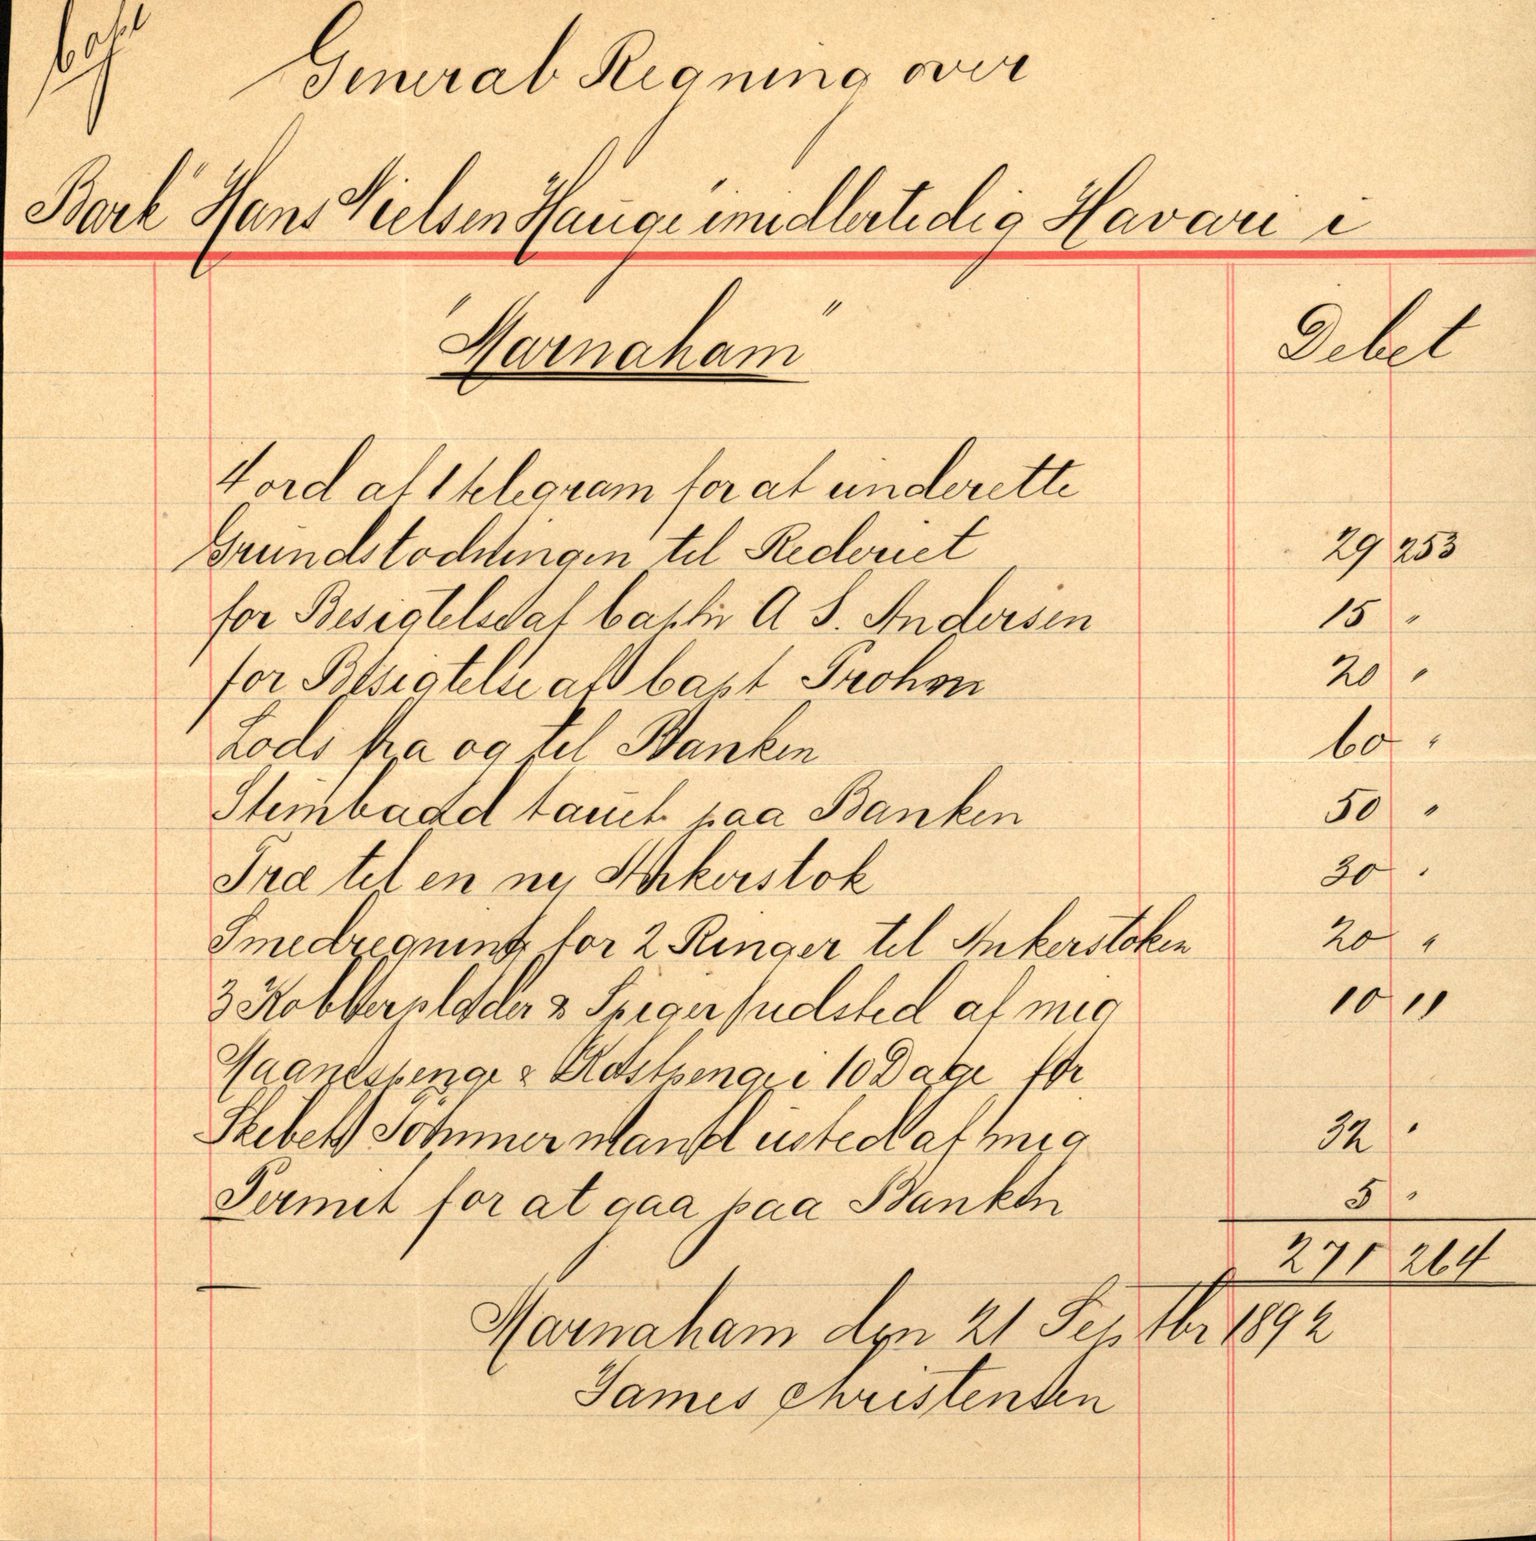 General Regning over
Bark "Hans Nielsen Hauge" imidlertidig Havari i
"Marnaham" Debet
4 ord af 1 telegram for at underette
Grundstodningen til Rederiet 29 253
for Besigtelse af Captn A S. Andersen 15 "
for Besigtelse af Capt Frohm 20 "
Lods fra og til Banken 60 "
Stembaad tauet paa Banken 50 "
Træ til en ny Ankerstok 30 "
Smedregning for 2 Ringer til Ankerstoken 20 "
3 Kobberplader & Spiger udsted af mig 10 11
Maanedspenge & Kostpenge i 10 Dage for
Skibets Tömmermand usted af mig 32 "
Permit for at gaa paa Banken 5 "
271 264
Marnaham den 21 Septbr 1892
James Christensen